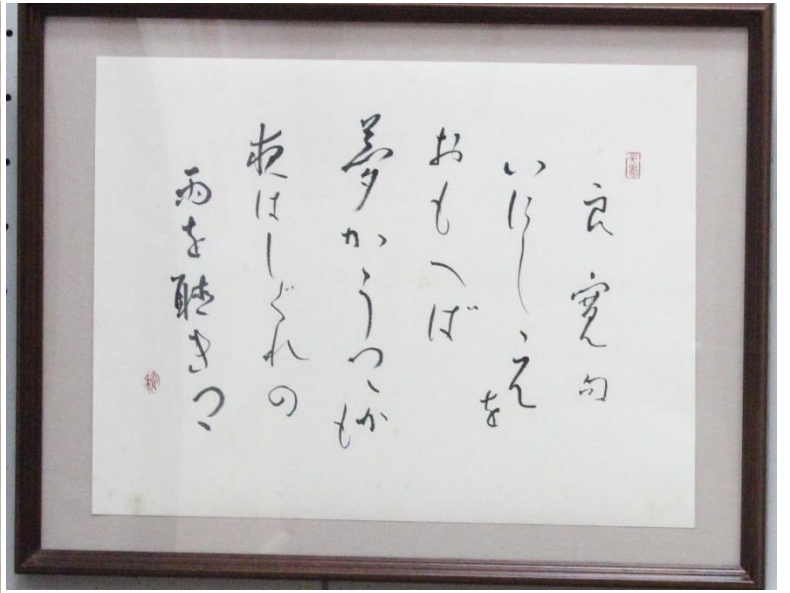 良寛句
いにしえを
おもへば
夢かうつゝかも
夜はしぐれの
雨を聴きつゝ